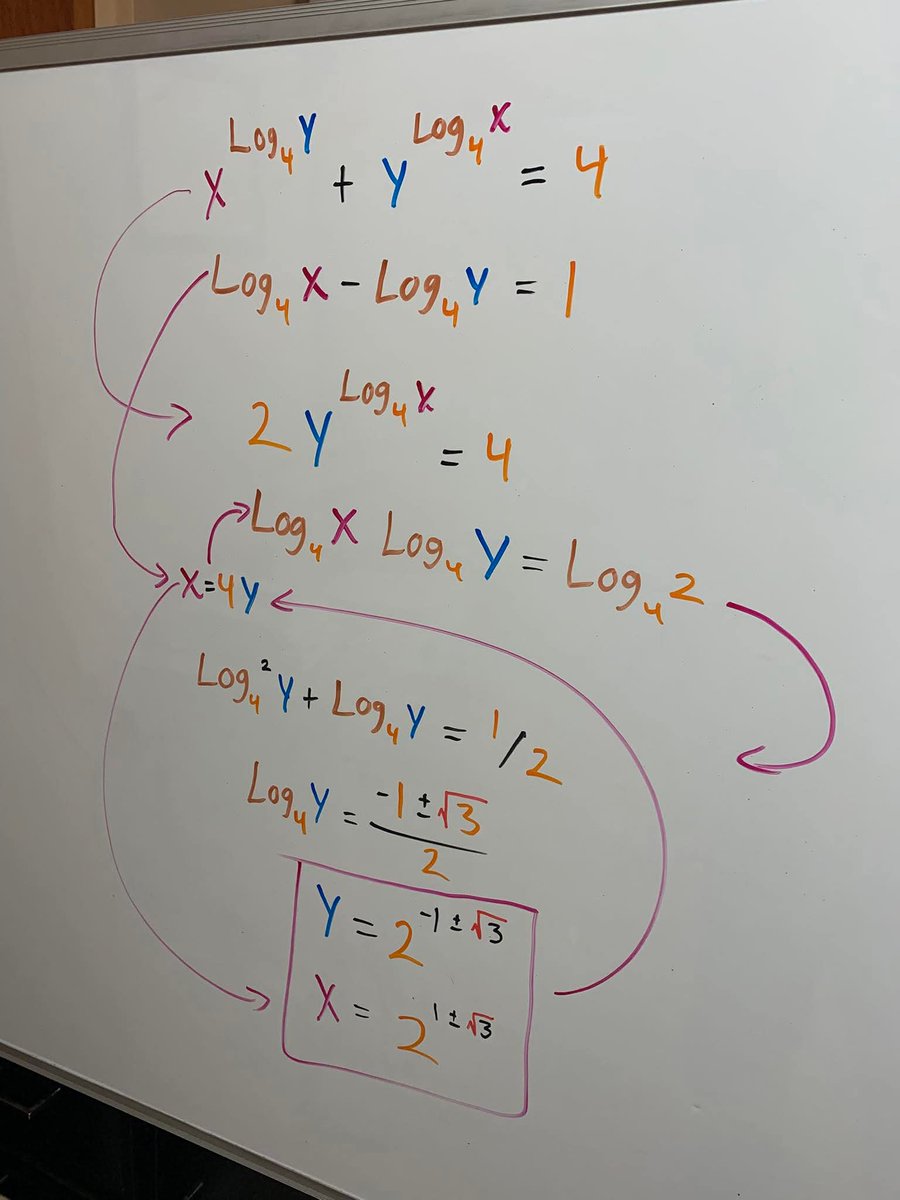 X^(Log₄Y) + Y^(Log₄X) = 4
Log₄X - Log₄Y = 1
2Y^(Log₄X) = 4
Log₄X Log₄Y = Log₄2
X=4Y
Log₄²Y + Log₄Y = 1/2
Log₄Y = (-1±√3)/2
Y = 2^(-1±√3)
X = 2^(1±√3)